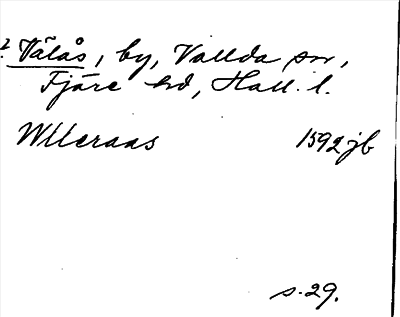 ? Välås, by, Vallda sn,
Fjäre hd, Hall. l.
Wlleraas 1592 jb
s. 29.